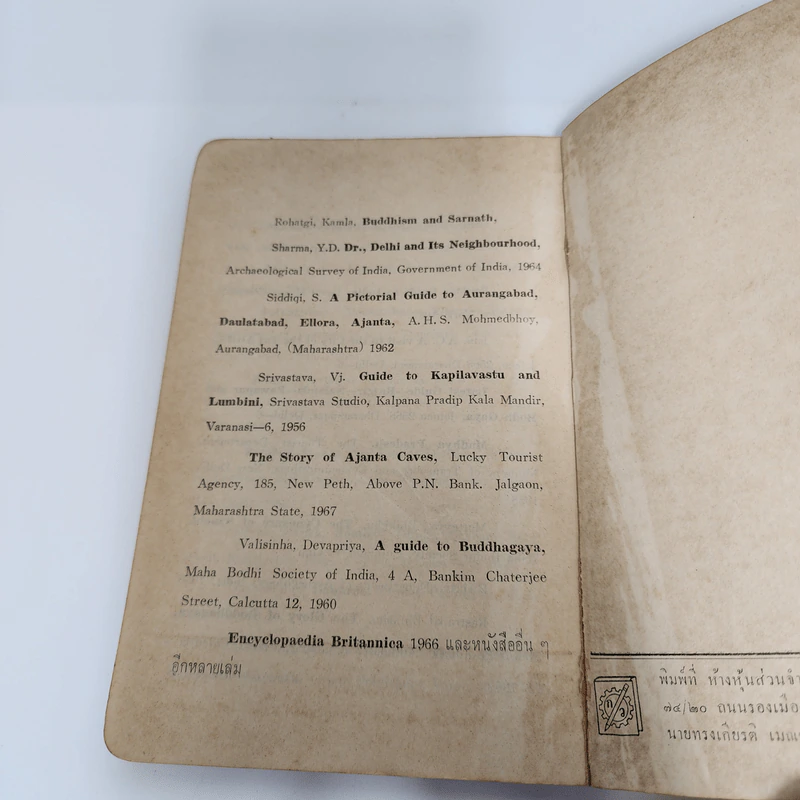 Rohatgi, Kamla, Buddhism and Sarnath,
Sharma, Y.D. Dr., Delhi and Its Neighbourhood,
Archaeological Survey of India, Government of India, 1964
Siddiqi, S. A Pictorial Guide to Aurangabad,
Daulatabad, Ellora, Ajanta, A. H. S. Mohmedbhoy,
Aurangabad, (Maharashtra) 1962
Srivastava, Vj. Guide to Kapilavastu and
Lumbini, Srivastava Studio, Kalpana Pradip Kala Mandir,
Varanasi—6, 1956
The Story of Ajanta Caves, Lucky Tourist
Agency, 185, New Peth, Above P.N. Bank. Jalgaon,
Maharashtra State, 1967
Valisinha, Devapriya, A guide to Buddhagaya,
Maha Bodhi Society of India, 4 A, Bankim Chaterjee
Street, Calcutta 12, 1960
Encyclopaedia Britannica 1966 และหนังสืออื่น ๆ
อีกหลายเล่ม
พิมพ์ที่ ห้างหุ้นส่วนจำ
๗๔/๒๐ ถนนรองเมือ
นายทรงเกียรติ